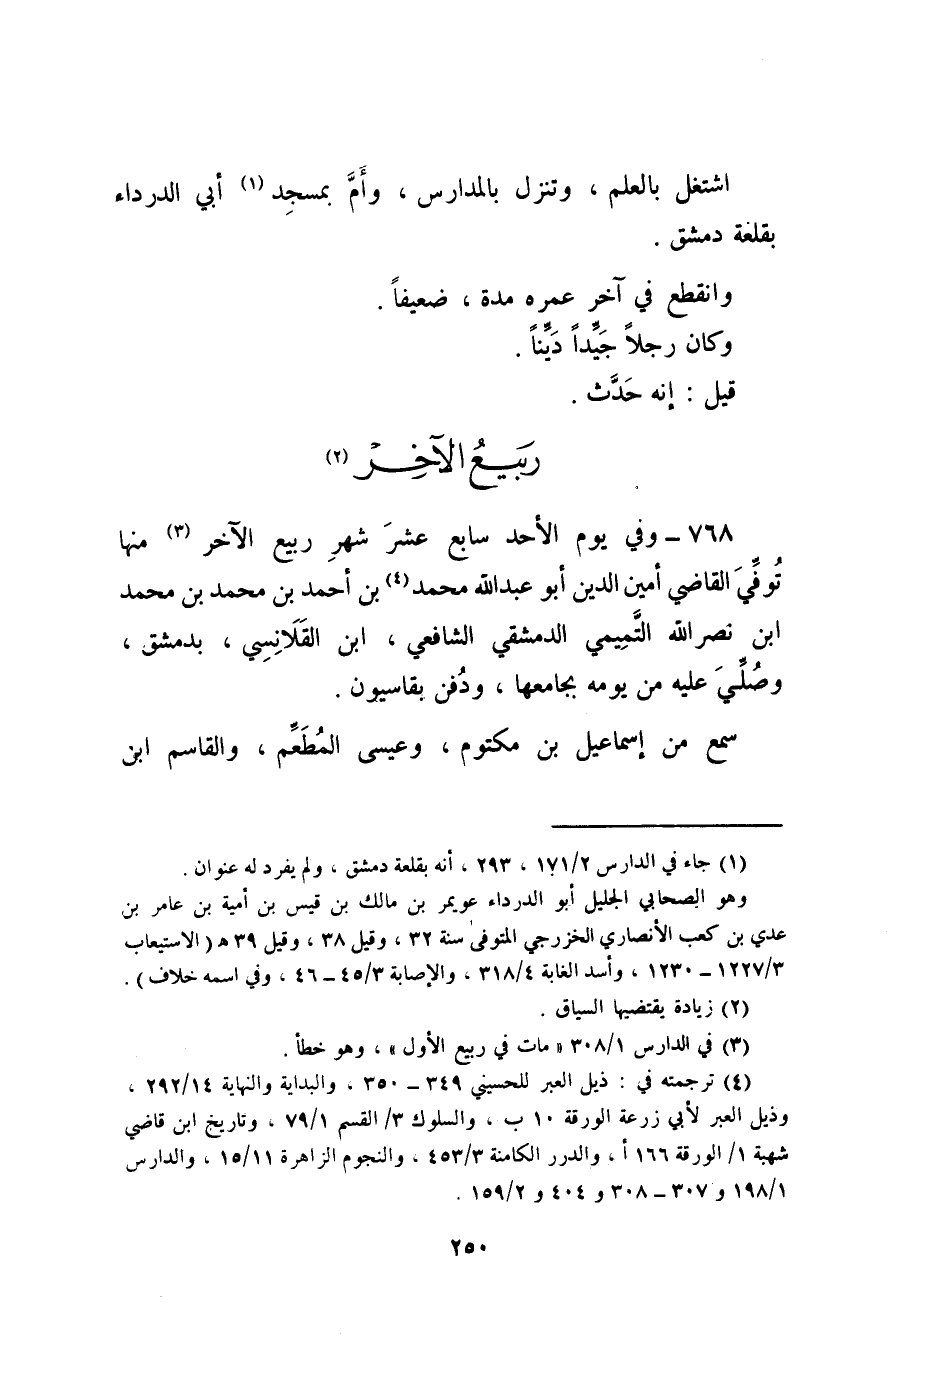 اشتغل بالعلم ، وتنزل بالمدارس ، وأَمَّ بمسجِد (١) أبي الدرداء
بقلعة دمشق .
وانقطع في آخرِ عمره مدة ، ضعيفاً .
وكان رجلاً جَيِّداً دَيِّناً .
قيل : إنه حَدَّث .
ربيعُ الآخِر (٢)
٧٦٨ ـ وفي يوم الأحد سابع عشرَ شهرِ ربيع الآخر (٣) منها
تُوفِّيَ القاضي أمين الدين أبو عبدالله محمد (٤) بن أحمد بن محمد بن محمد
ابن نصرالله التَّمِيمي الدمشقي الشافعي ، ابن القَلَانِسي ، بدمشق ،
وصُلِّيَ عليه من يومه بجامعها ، ودُفن بقاسيون .
سمع من إسماعيل بن مكتوم ، وعيسى المُطَعِّم ، والقاسم ابن
(١) جاء في الدارس ١٧١/٢ ، ٢٩٣ ، أنه بقلعة دمشق ، ولم يفرد له عنوان .
وهو الصحابي الجليل أبو الدرداء عويمر بن مالك بن قيس بن أمية بن عامر بن
عدي بن كعب الأنصاري الخزرجي المتوفى سنة ٣٢ ، وقيل ٣٨ ، وقيل ٣٩ هـ ( الاستيعاب
١٢٢٧/٣ ـ ١٢٣٠ ، وأسد الغابة ٣١٨/٤ ، والإصابة ٤٥/٣ ـ ٤٦ ، وفي اسمه خلاف ) .
(٢) زيادة يقتضيها السياق .
(٣) في الدارس ٣٠٨/١ « مات في ربيع الأول » ، وهو خطأ .
(٤) ترجمته في : ذيل العبر للحسيني ٣٤٩ ـ ٣٥٠ ، والبداية والنهاية ٢٩٢/١٤ ،
وذيل العبر لأبي زرعة الورقة ١٠ ب ، والسلوك ٣/ القسم ٧٩/١ ، وتاريخ ابن قاضي
شهبة ١/ الورقة ١٦٦ أ ، والدرر الكامنة ٤٥٣/٣ ، والنجوم الزاهرة ١٥/١١ ، والدارس
١٩٨/١ و ٣٠٧ ـ ٣٠٨ و ٤٠٤ و ١٥٩/٢ .
٢٥٠